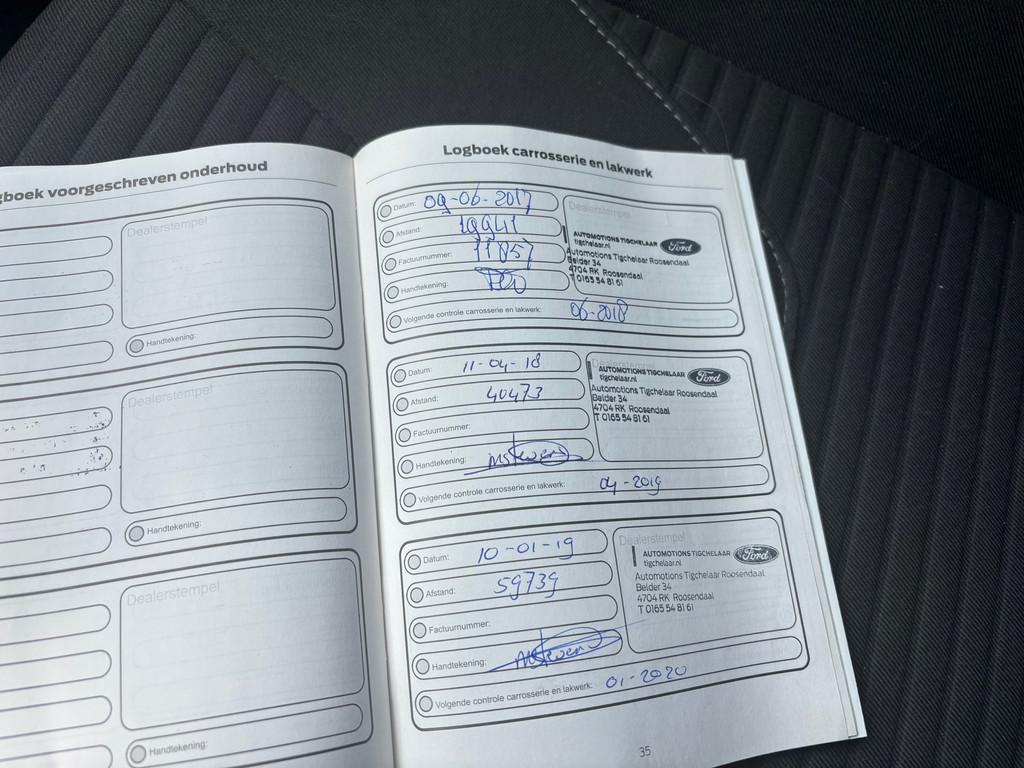 gboek voorgeschreven onderhoud
Dealerstempel
Handtekening:
Dealerstempel
Handtekening:
Dealerstempel
Handtekening:
Logboek carrosserie en lakwerk
Datum: 09-06-2017
Afstand: 19941
Factuurnummer: 11857
Handtekening:
Volgende controle carrosserie en lakwerk: 06-2018
Dealerstempel
AUTOMOTIONS TIGCHELAAR Ford
tigchelaar.nl
Automotions Tigchelaar Roosendaal
Belder 34
4704 RK Roosendaal
T 0165 54 81 61
Datum: 11-04-18
Afstand: 40473
Factuurnummer:
Handtekening:
Volgende controle carrosserie en lakwerk: 04-2019
Dealerstempel
AUTOMOTIONS TIGCHELAAR Ford
tigchelaar.nl
Automotions Tigchelaar Roosendaal
Belder 34
4704 RK Roosendaal
T 0165 54 81 61
Datum: 10-01-19
Afstand: 59739
Factuurnummer:
Handtekening:
Volgende controle carrosserie en lakwerk: 01-2020
Dealerstempel
AUTOMOTIONS TIGCHELAAR Ford
tigchelaar.nl
Automotions Tigchelaar Roosendaal
Belder 34
4704 RK Roosendaal
T 0165 54 81 61
35